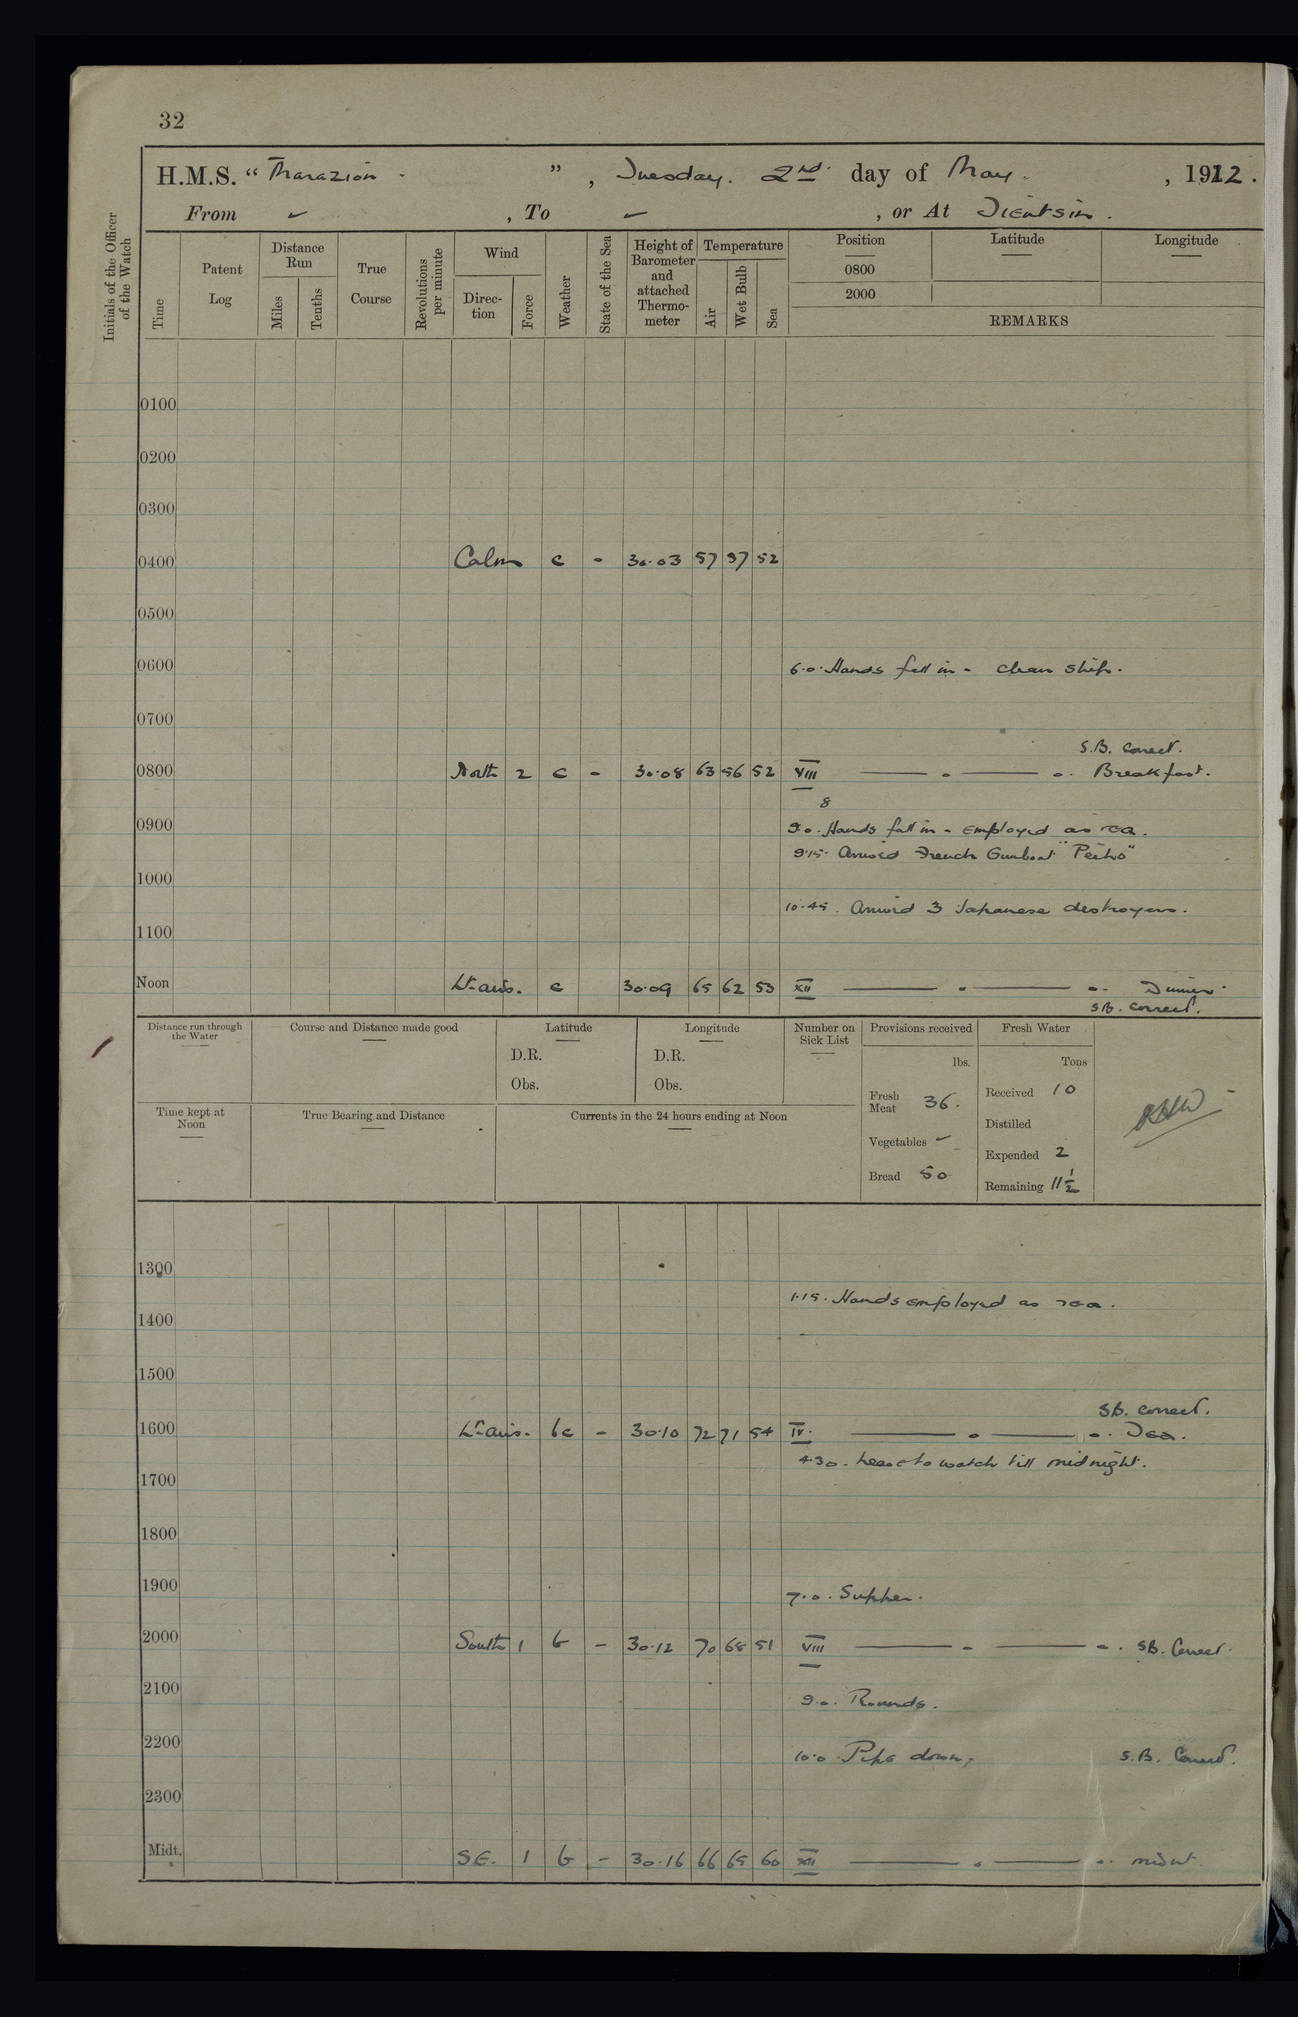 32
H.M.S. “ Marazion . ” , Tuesday. 2nd. day of May. , 1922.
From ✓ , To ✓ , or At Tientsin .
Initials of the Officer of the Watch
Time
Patent Log
Distance Run
Miles
Tenths
True Course
Revolutions per minute
Wind
Direction
Force
Weather
State of the Sea
Height of Barometer and attached Thermometer
Temperature
Air
Wet Bulb
Sea
Position
Latitude
Longitude
0800
2000
REMARKS
0100
0200
0300
0400 Calm c - 30.03 57 57 52
0500
0600 6.0. Hands fall in - clean ship.
0700
S.B. correct.
0800 North 2 c - 30.08 63 56 52 VIII — . — . . Breakfast.
8
0900 9.0. Hands fall in - employed as req.
9.15. Arrived French Gunboat "Peiho"
1000
10.45. Arrived 3 Japanese destroyers.
1100
Noon Lt airs. c 30.09 65 62 53 XII — . — . . Dinner.
S.B. correct.
Distance run through the Water
Course and Distance made good
Latitude
D.R.
Obs.
Longitude
D.R.
Obs.
Number on Sick List
Provisions received
lbs.
Fresh Meat 36.
Vegetables ✓
Bread 50
Fresh Water
Tons
Received 10
Distilled
Expended 2
Remaining 11½
Time kept at Noon
True Bearing and Distance
Currents in the 24 hours ending at Noon
1300
1.15. Hands employed as req.
1400
1500
S.B. correct.
1600 Lt airs. bc - 30.10 72 71 54 IV. — . — . . Tea.
4.30. Leave to watch till midnight.
1700
1800
1900 7.0. Supper.
2000 South 1 b - 30.12 70 68 51 VIII — . — . . S.B. Correct.
2100 9.0. Rounds.
2200 10.0 Pipe down. S.B. Correct.
2300
Midt. S.E. 1 b - 30.16 66 65 60 XII — . — . . midnt